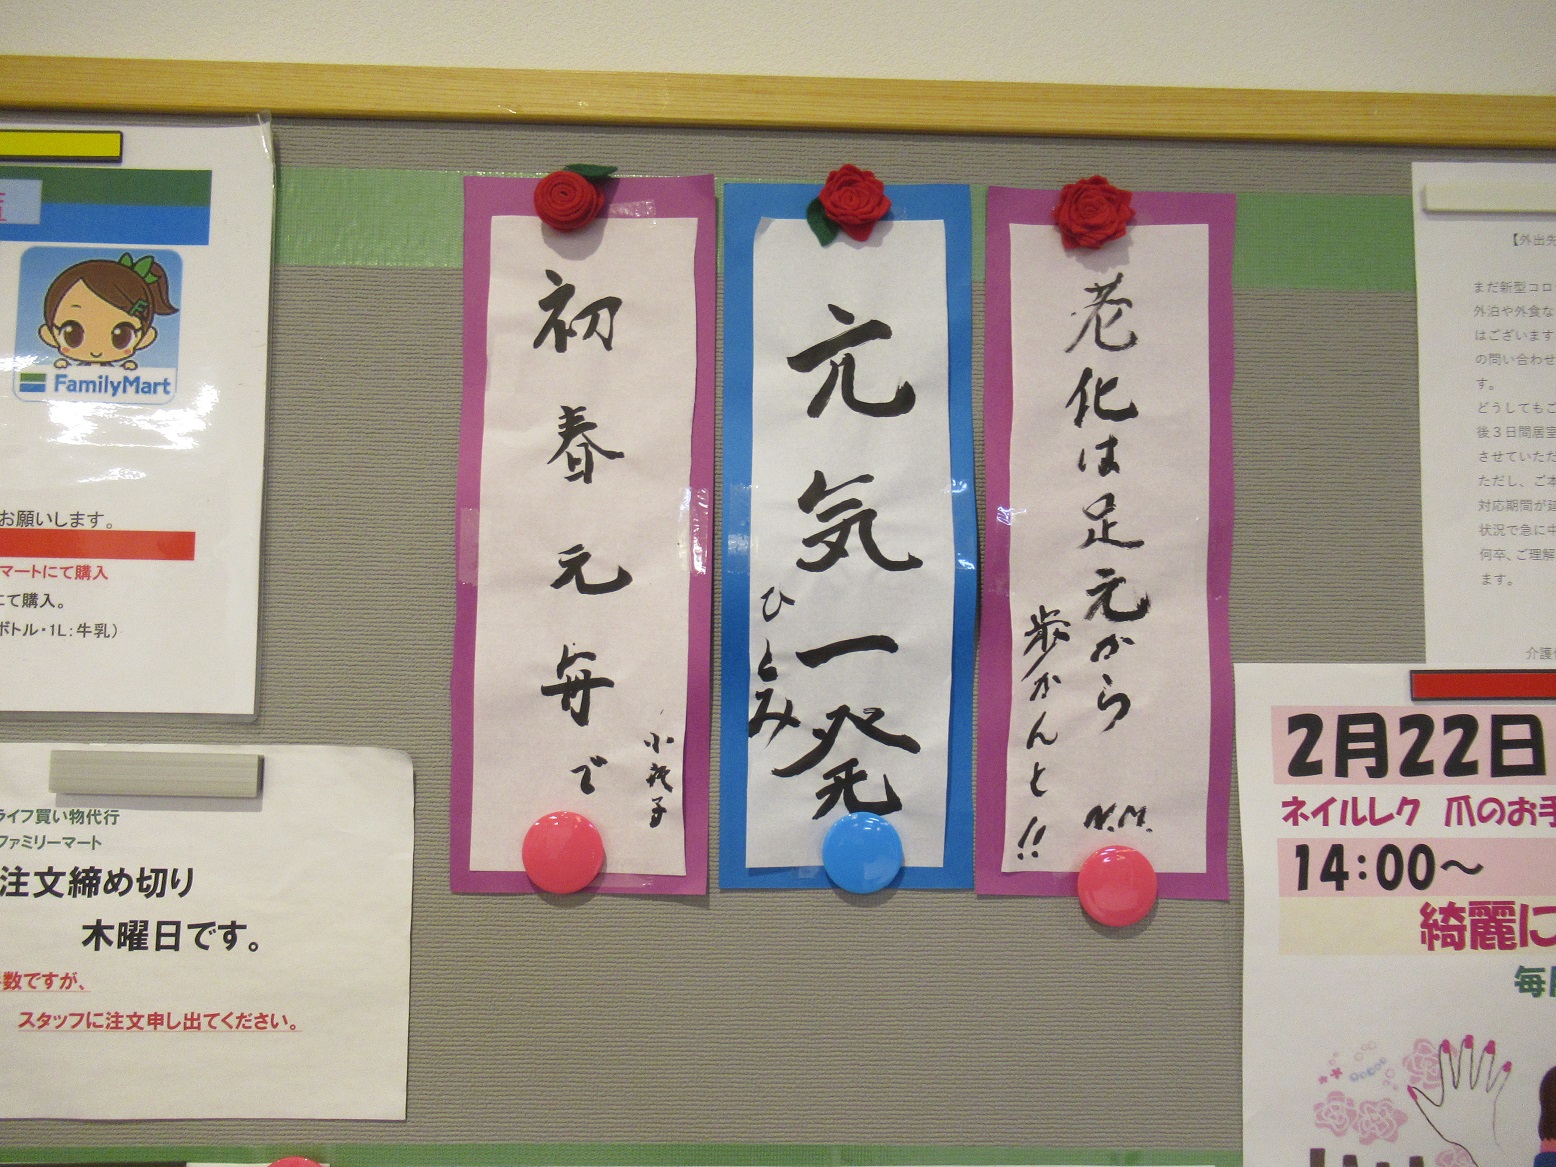 FamilyMart
お願いします。
マートにて購入
にて購入。
ボトル・1L:牛乳）
ライフ買い物代行
ファミリーマート
注文締め切り
木曜日です。
数ですが、
スタッフに注文申し出てください。
初春元毎で
元気一発
ひとみ
老化は足元から
歩かんと!!
N.M.
【外出先
まだ新型コロ
外泊や外食な
はございます
の問い合わせ
す。
どうしてもご
後３日間居室
させていただ
ただし、ご本
対応期間が延
状況で急に中
何卒、ご理解
ます。
介護
2月22日
ネイルレク 爪のお手
14:00～
綺麗に
毎月